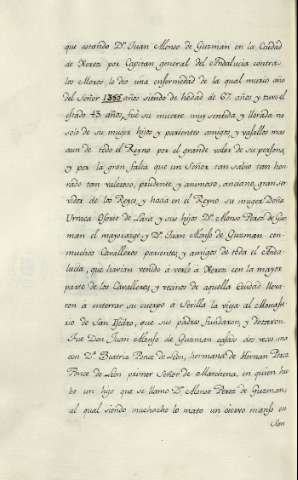 que estando Dn. Juan Alonso de Guzman en la Ciudad
de Xerez por Capitan general del Andalucia contra
los Moros, le dio una enfermedad de la qual murio año
del Señor 1365 años siendo de hedad de 67 años y tuvo el
estado 43 años, fué su muerte muy sentida y llorada no
solo de su muger hijos y parientes amigos y vasallos mas
aun de todo el Reyno por el grande valor de su persona
y por la gran falta que un Señor tan sabio tan hon
rado tan valeroso, prudente y animoso, anciano, gran ser
vidor de los Reyes y hacia en el Reyno su muger Doña
Urraca Osorio de Lara y sus hijos Dn. Alonso Perez de Guz
man el mayorazgo y Dn. Juan Alonso de Guzman con
muchos Cavalleros parientes y amigos de toda el Anda
lucia, que havian venido a verle à Xerez con la mayor
parte de los Cavalleros y vecinos de aquella Ciudad lleva
ron a enterrar su cuerpo a Sevilla la vieja al Monaste
rio de San Isidro, que sus padres fundaron y dotaron.
Fue Don Juan Alonso de Guzman casado dos veces una
con Da. Beatriz Ponce de León, hermana de Hernan Perez
Ponce de León primer Señor de Marchena, en quien hu
bo un hijo que se llamo Dn. Alonso Perez de Guzman,
al qual siendo muchacho lo mato un ciervo manso en
San